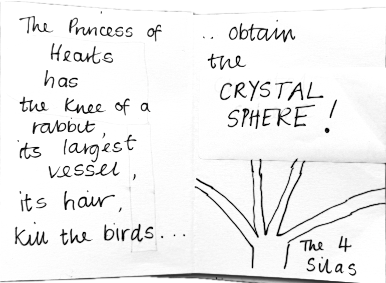 The Princess of
Hearts
has
the Knee of a
rabbit,
its largest
vessel,
its hair,
kill the birds...
.. obtain
the
CRYSTAL
SPHERE!
The 4
Silas